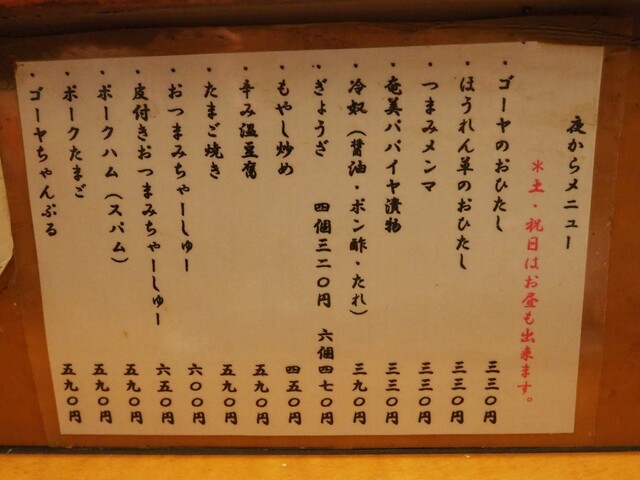 夜からメニュー
*土・祝日はお昼も出来ます。
・ゴーヤのおひたし 三三〇円
・ほうれん草のおひたし 三三〇円
・つまみメンマ 三三〇円
・奄美パパイヤ漬物 三三〇円
・冷奴(醤油・ポン酢・たれ) 三九〇円
・ぎょうざ 四個三二〇円 六個四七〇円
・もやし炒め 四五〇円
・辛み温豆腐 五九〇円
・たまご焼き 五九〇円
・おつまみちゃーしゅー 六〇〇円
・皮付きおつまみちゃーしゅー 六五〇円
・ポークハム(スパム) 五九〇円
・ポークたまご 五九〇円
・ゴーヤちゃんぷる 五九〇円